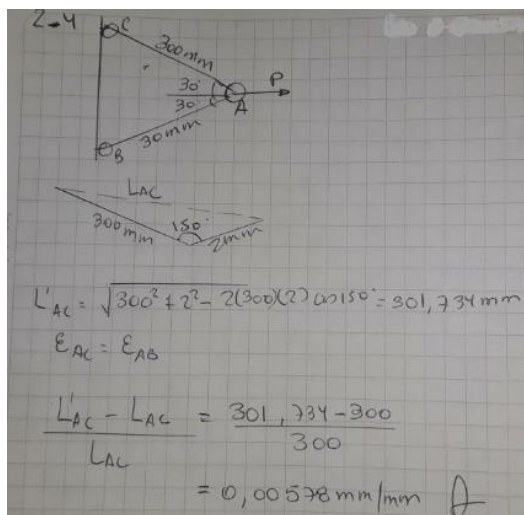 2-4
C
300mm
30°
P
30°
A
30mm
B
LAC
300mm
150°
2mm
L'AC = √300² + 2² - 2(300)(2) cos150° = 301,734 mm
EAC = EAB
L'AC - LAC / LAC = 301,734 - 300 / 300
= 0,00578 mm/mm